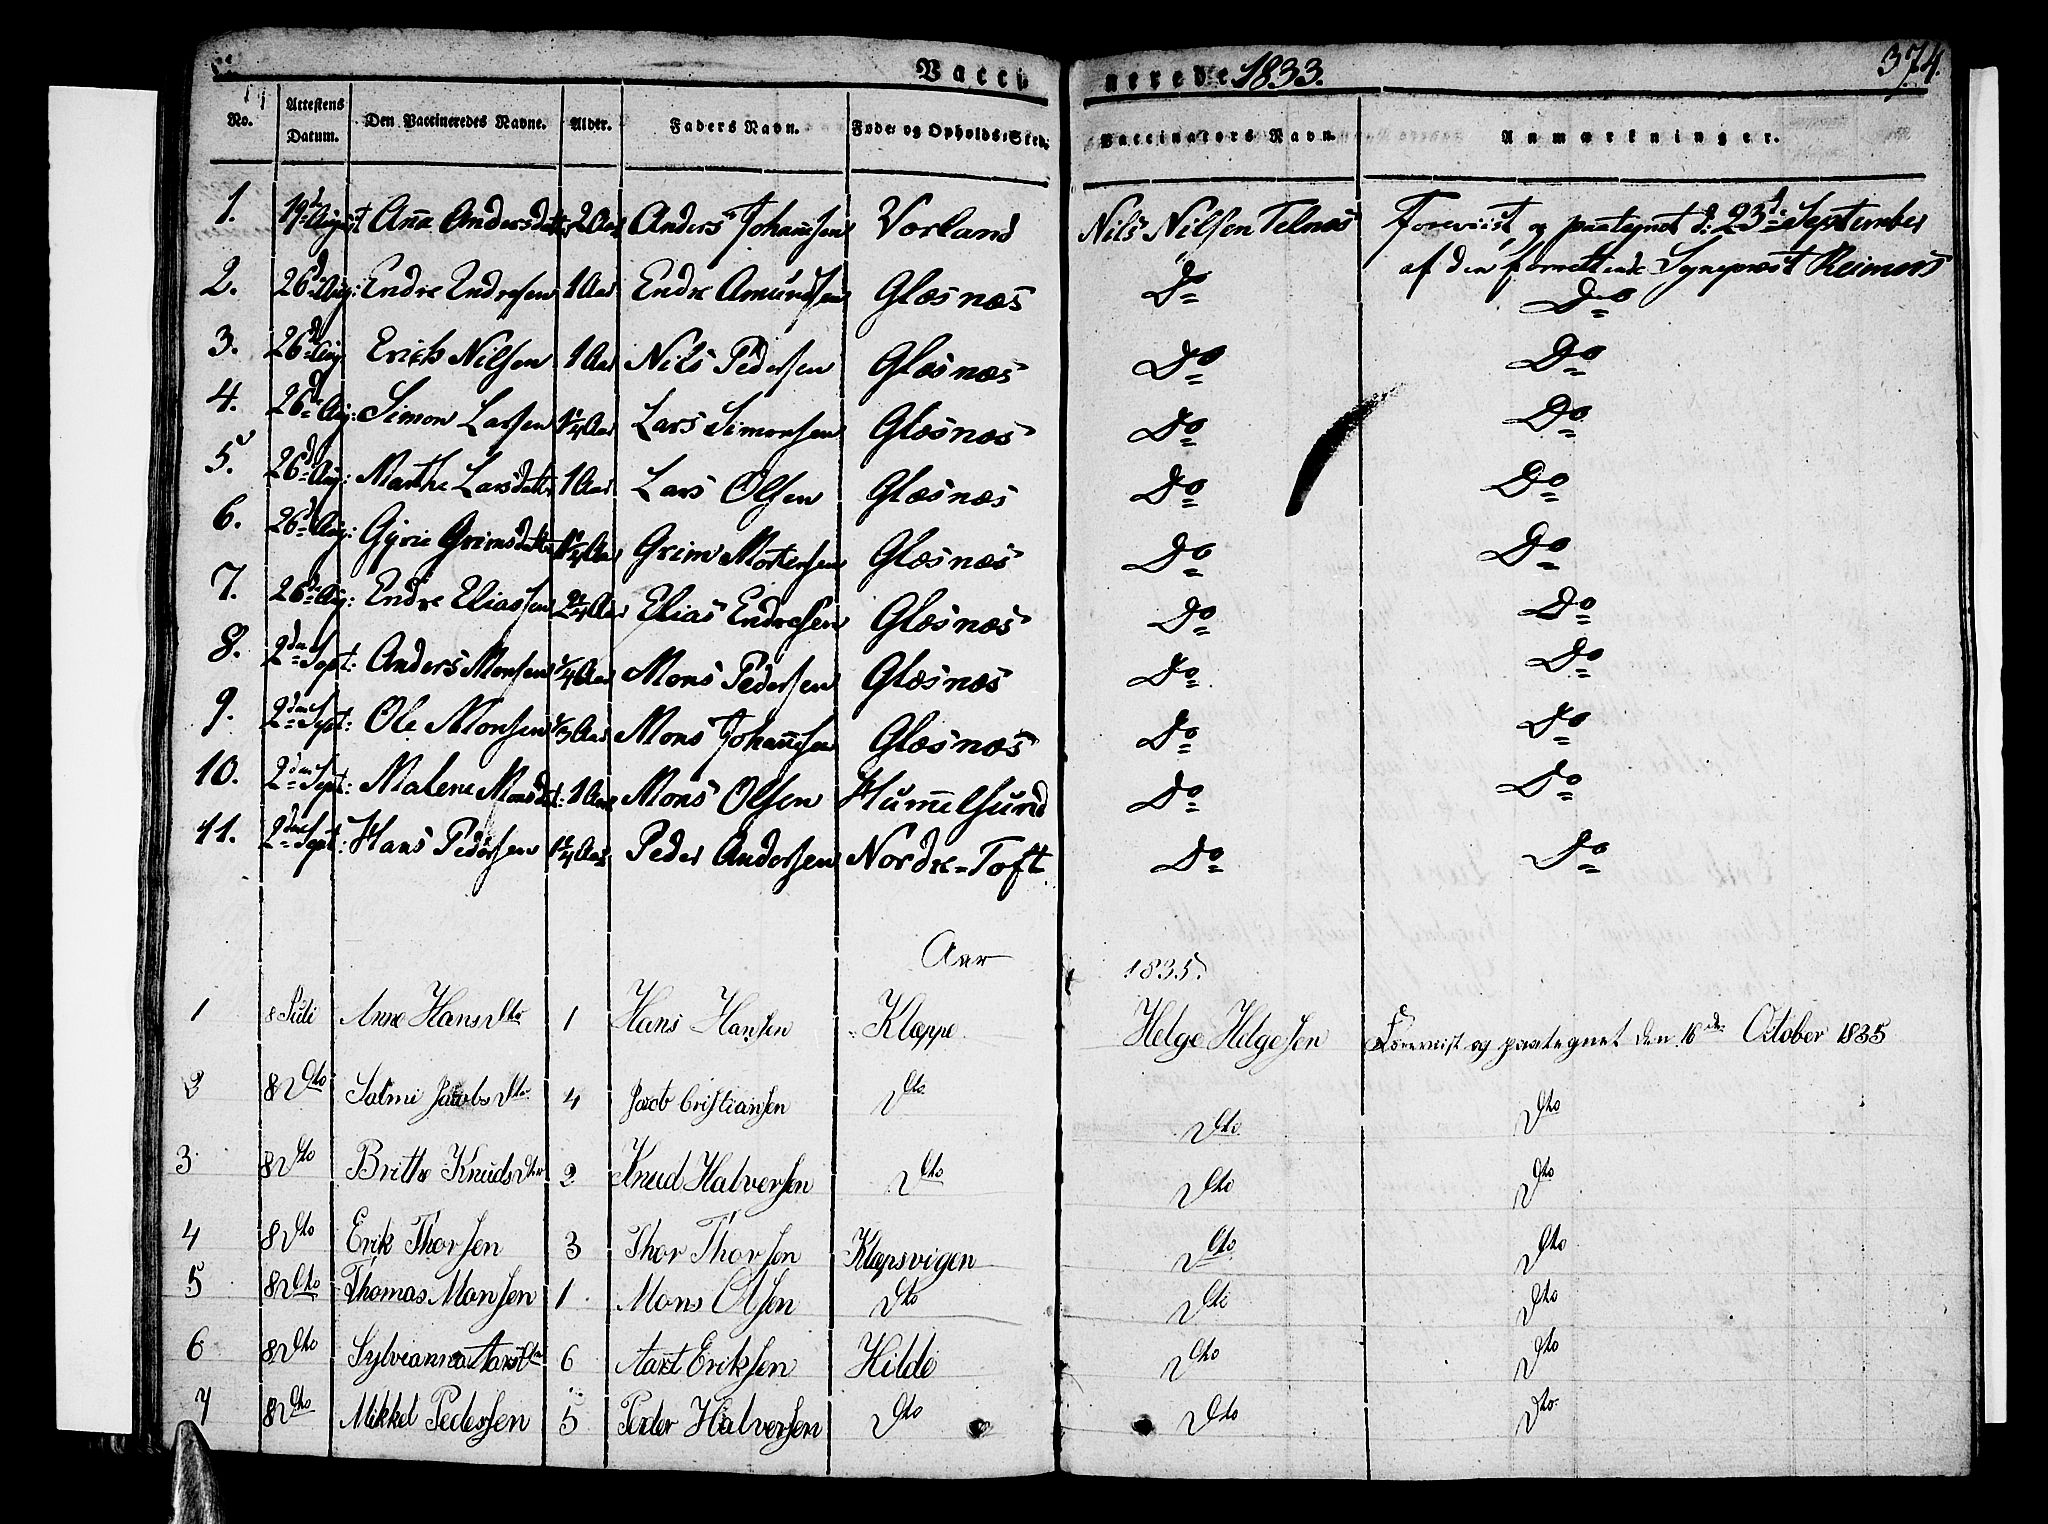 Vacci nerede 1833. 374.
No. Attestens Datum. Den Vaccineredes Navne. Alder. Faders Navn. Føde- og Opholds-Sted. Vaccinateurs Navn. Anmærkninger.
1. 19d August Ane Andersdatter 2 Aar Anders Johannesen Vorland Nils Nilsen Telnæs Foreviist og paategnet d: 23d September
af den forrettende Sognepræst Reimers
2. 26d Aug: Endre Endresen 1 Aar Endre Amundsen Glæsnæs Do Do
3. 26d Aug. Erick Nilsen 1 Aar Nils Pedersen Glæsnæs Do Do
4. 26d Aug: Simon Larsen 1 1/4 Aar Lars Simonsen Glæsnæs Do Do
5. 26d Aug: Marthe Larsdatter 1 Aar Lars Olsen Glæsnæs Do Do
6. 26d Aug: Gyrie Grimsdatter 1 1/4 Aar Grim Mortensen Glæsnæs Do Do
7. 26d Aug: Endre Eliassen 2 1/4 Aar Elias Endresen Glæsnæs Do Do
8. 2den Sept: Anders Monsen 1/4 Aar Mons Pedersen Glæsnæs Do Do
9. 2den Sept: Ole Monsen 1/3 Aar Mons Johannesen Glæsnæs Do Do
10. 2den Sept: Malene Monsdat: 1 Aar Mons Olsen Hummelsund Do Do
11. 2den Sept: Hans Pedersen 1 1/4 Aar Peder Andersen Nordre-Toft Do Do
Aar 1835.
1 8 Juli Anne Hansdtr 1 Hans Hansen Klæppe Helge Helgesen Forevist og paategnet den 16de October 1835
2 8 Dto Salmi Jacobsdtr 4 Jacob Cristiansen Dto Dto Dto
3 8 Dto Brithe Knudsdtr 2 Knud Halversen Dto Dto Dto
4 8 Dto Erik Thorsen 3 Thor Thorsen Klepsvigen Dto Dto
5 8 Dto Thomas Monsen 1 Mons Olsen Dto Dto Dto
6 8 Dto Sylvianna 6 Eriksen Hilde Dto Dto
7 8 Dto Mikkel Pedersen 5 Peder Halversen Dto Dto Dto